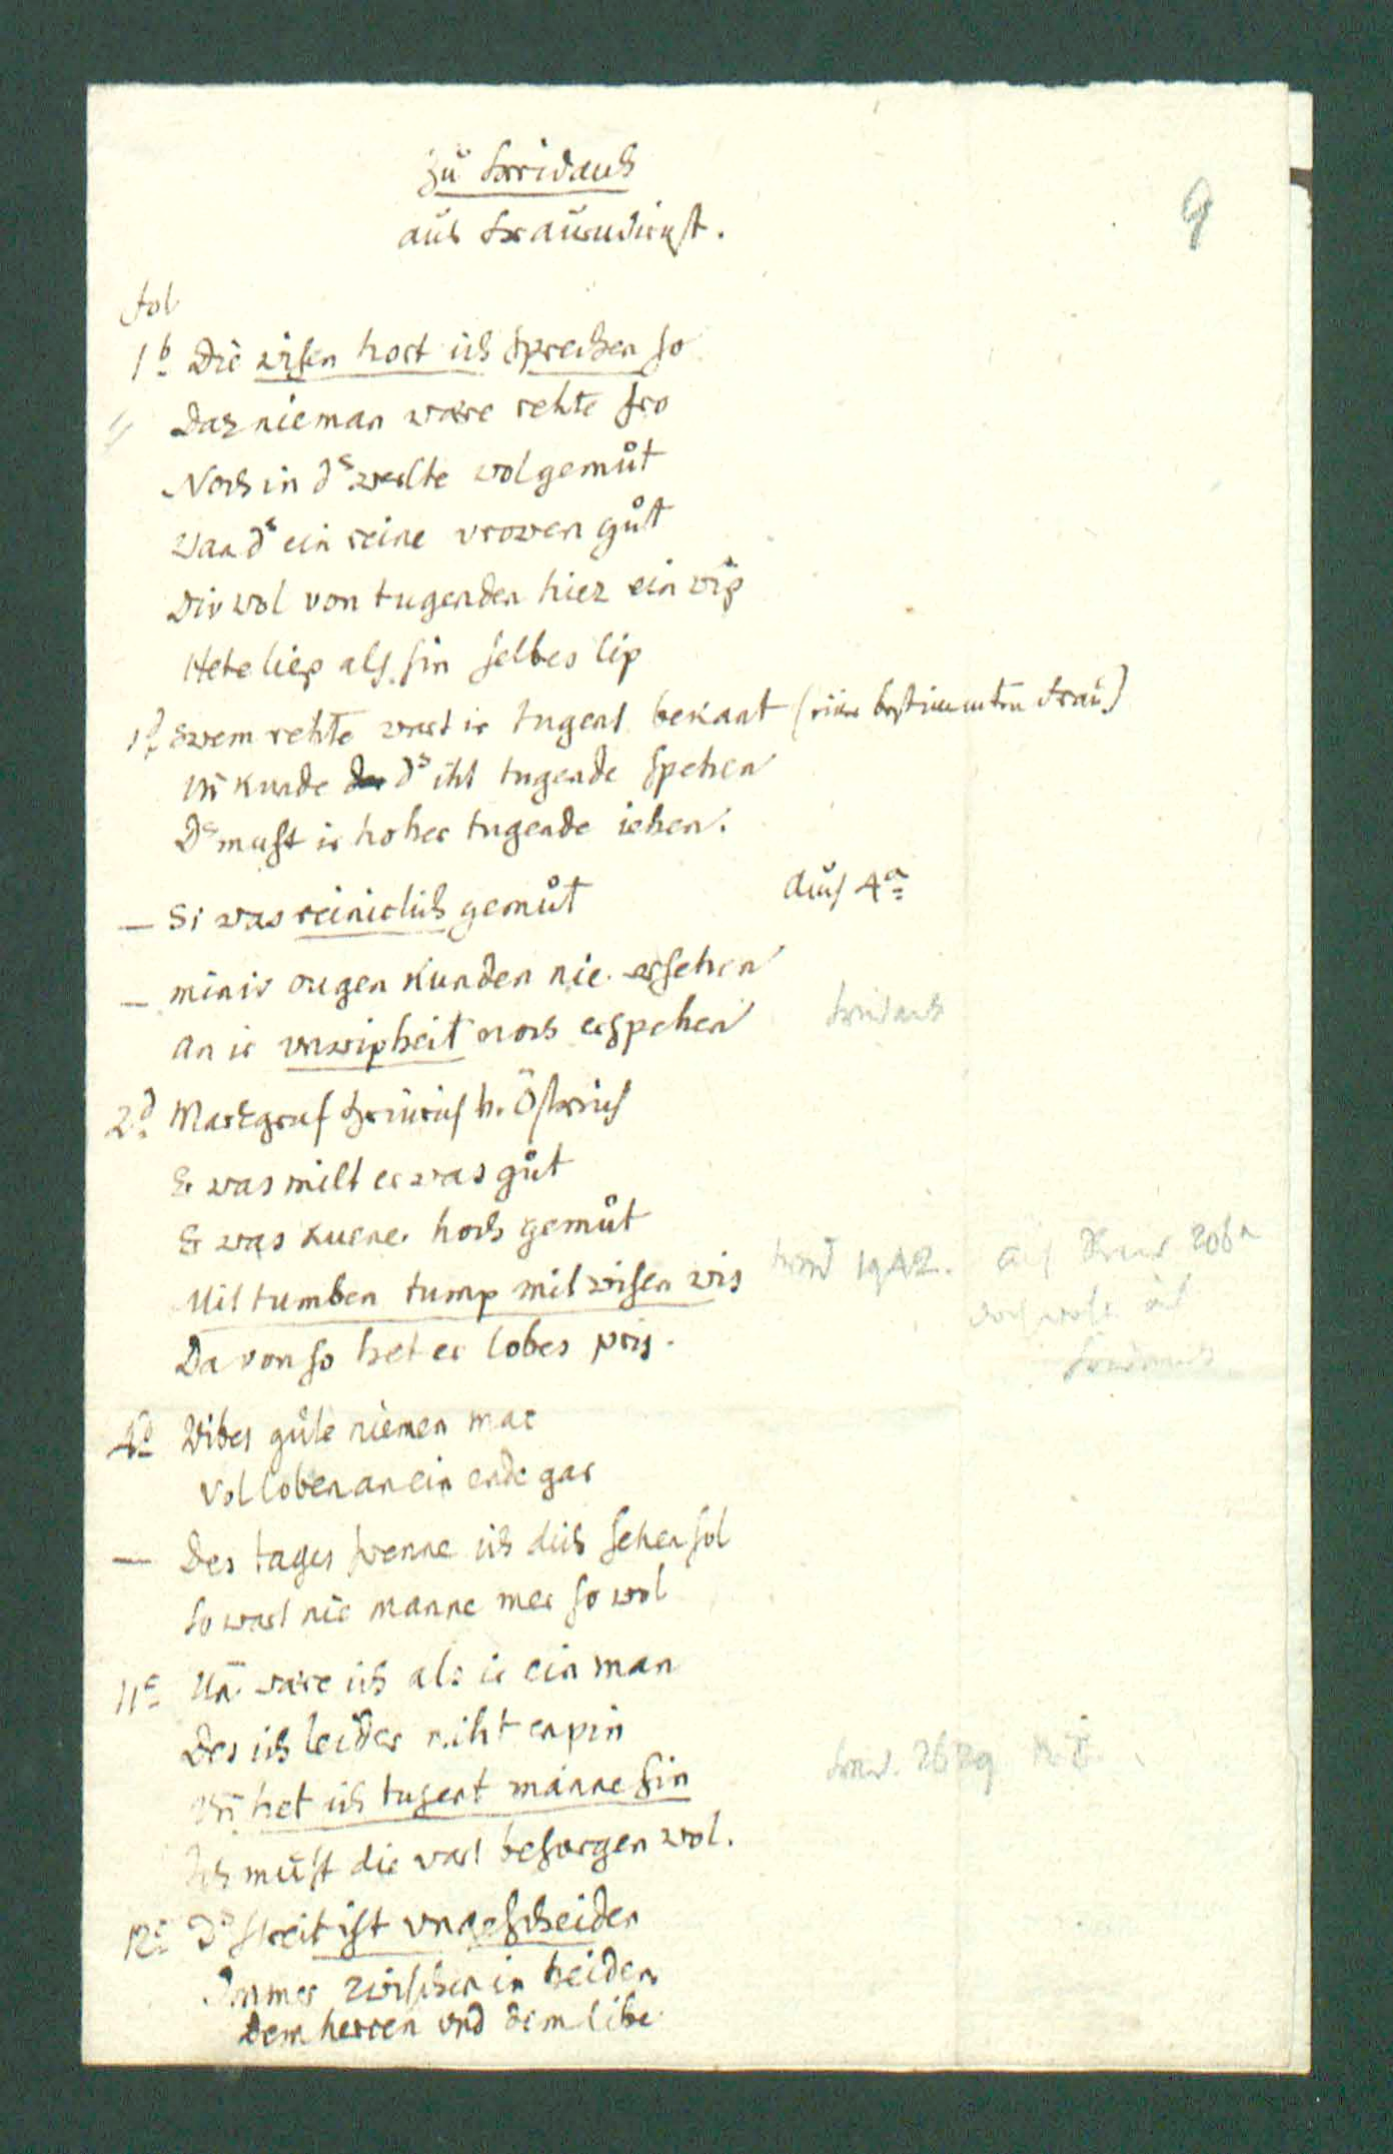 Zu Freidank
aus Frauendienst.
9
fol
1b Die wisen hort ich sprechen so
Daz nieman wære rehte fro
Noch in ds werlte wol gemůt
Wan ds ein reine vrowen gůt
Div wol von tugenden hiez ein wip
Hete liep als sin selbes lip
1d Swem rehte wart ir tugent bekant (einer bestimmten Frau)
Vn̄ kunde ds iht tugende spehen
Ds must ir hoher tugende iehen.
— Si was reiniclich gemůt auch 4a
— miniv ougen kunden nie ersehen
an ir vnwipheit noch erspehen Freidank
2d Markgraf Heinrich v. Östreich
Er was milt er was gůt
Er was kuene hoch gemůt
Mit tumben tump mit wisen wis
Da von so het er lobes pris.
4d Wibes gůte niemen mac
Vol loben an ein ende gar
— Des tages swenne ich dich sehen sol
So wart nie manne mer so wol
11c Vn̄ wære ich als ir ein man
Des ich leider niht enpin
Vn̄ het ich tugent manne sin
Ich můst die vart besorgen wol.
12c Ds streit ist vngescheiden
Immer zwischen in beiden
Dem herren vnd dem libe